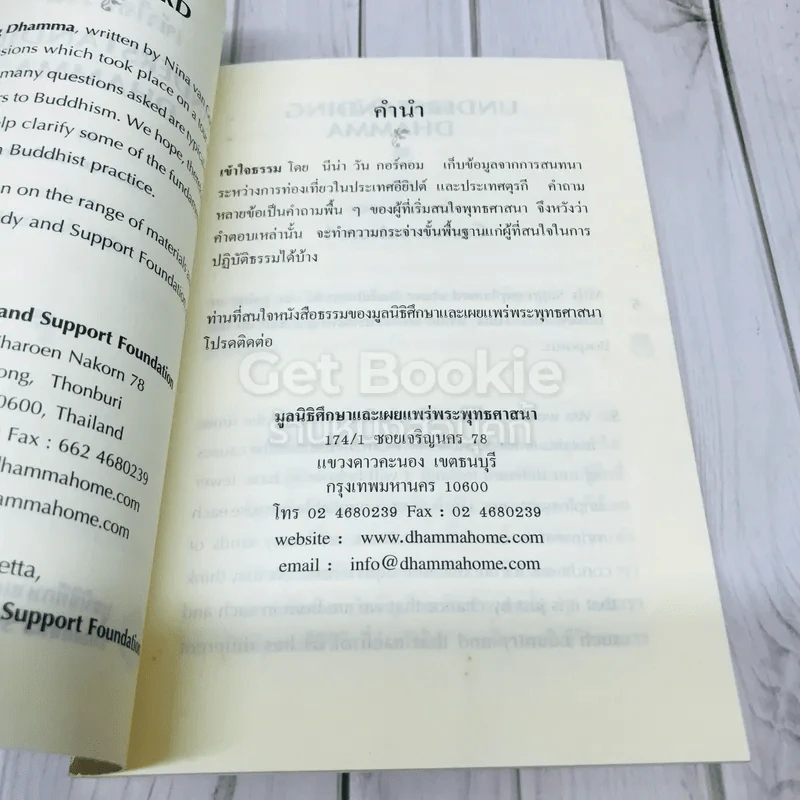 Dhamma, written by Nina van
which took place on a tour
many questions asked are typical
to Buddhism. We hope,
clarify some of the
Buddhist practice.
on the range of materials
and Support Foundation
and Support Foundation
Charoen Nakorn 78
Thonburi
10600, Thailand
Fax : 662 4680239
dhammahome.com
dhammahome.com
Support Foundation
คำนำ
เข้าใจธรรม โดย นีน่า วัน กอร์คอม เก็บข้อมูลจากการสนทนา
ระหว่างการท่องเที่ยวในประเทศอียิปต์ และประเทศตุรกี คำถาม
หลายข้อเป็นคำถามพื้น ๆ ของผู้ที่เริ่มสนใจพุทธศาสนา จึงหวังว่า
คำตอบเหล่านั้น จะทำความกระจ่างขั้นพื้นฐานแก่ผู้ที่สนใจในการ
ปฏิบัติธรรมได้บ้าง
ท่านที่สนใจหนังสือธรรมของมูลนิธิศึกษาและเผยแพร่พระพุทธศาสนา
โปรดติดต่อ
Get Bookie
มูลนิธิศึกษาและเผยแพร่พระพุทธศาสนา
174/1 ซอยเจริญนคร 78
แขวงดาวคะนอง เขตธนบุรี
กรุงเทพมหานคร 10600
โทร 02 4680239 Fax : 02 4680239
website : www.dhammahome.com
email : info@dhammahome.com